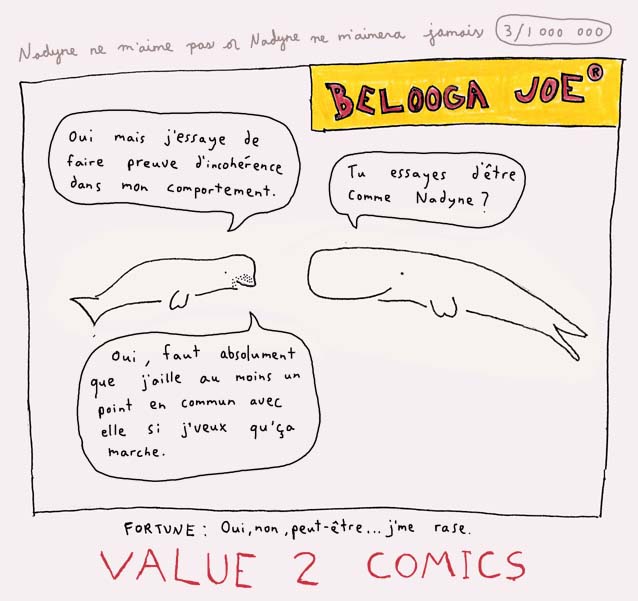 Nadyne ne m'aime pas or Nadyne ne m'aimera jamais 3/1 000 000
BELOOGA JOE®
Oui mais j'essaye de
faire preuve d'incohérence
dans mon comportement.
Tu essayes d'être
comme Nadyne?
Oui, faut absolument
que j'aille au moins un
point en commun avec
elle si j'veux qu'ça
marche.
FORTUNE: Oui, non, peut-être... j'me rase.
VALUE 2 COMICS